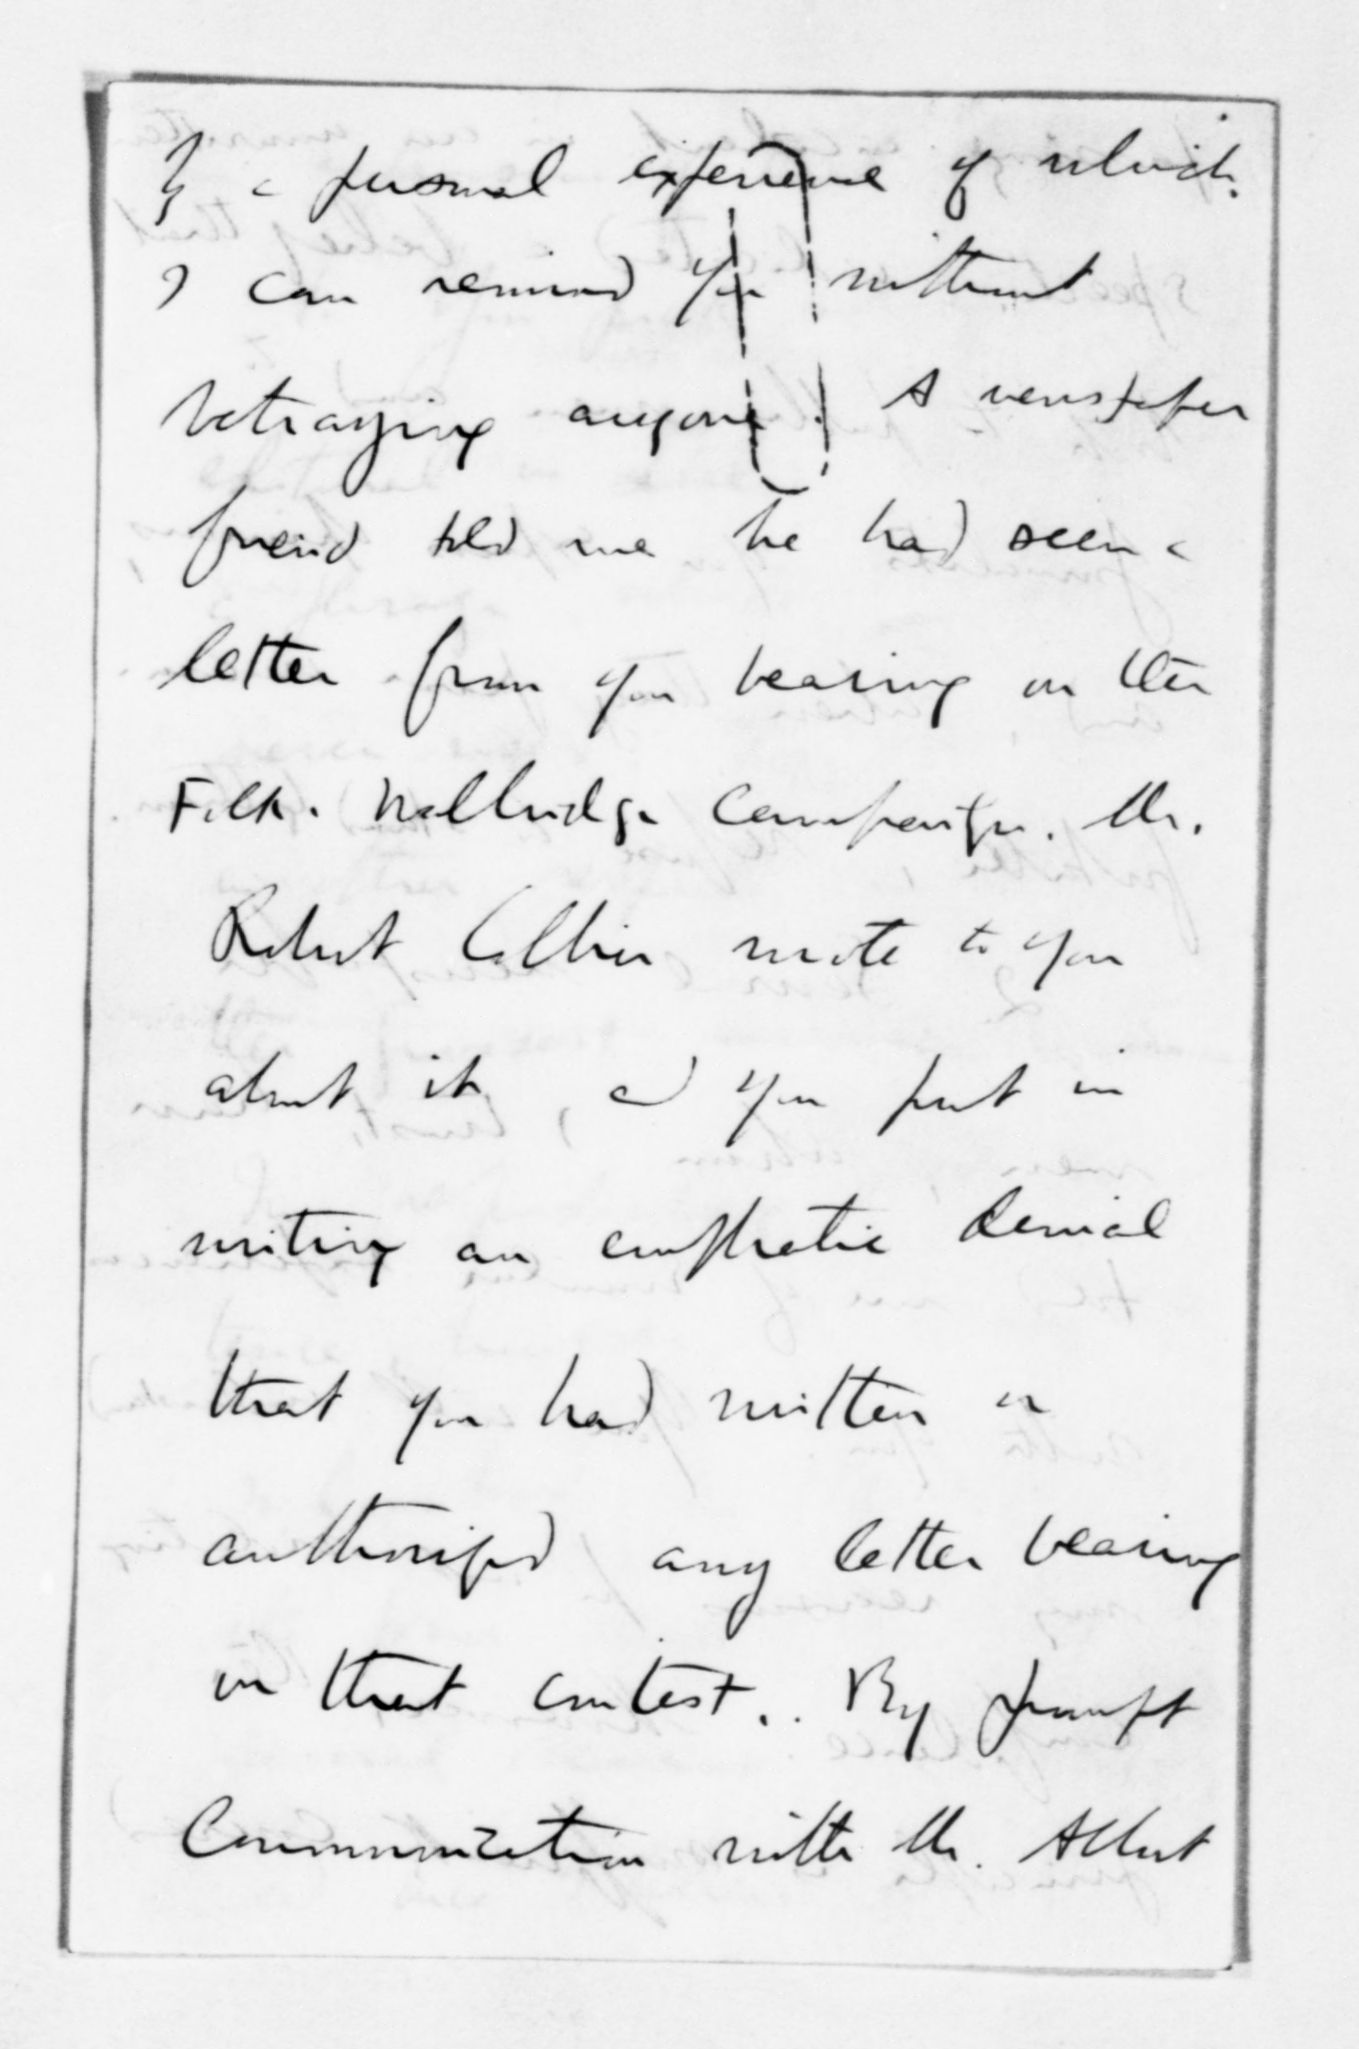 by a personal experience of which
I can remind you without
betraying anyone. A newspaper
friend told me he had seen a
letter from you bearing on the
Folk-Walbridge campaign. Mr.
Robert Collier wrote to you
about it, and you put in
writing an emphatic denial
that you had written or
authorized any letter bearing
on that contest. By prompt
Communication with Mr. Albert